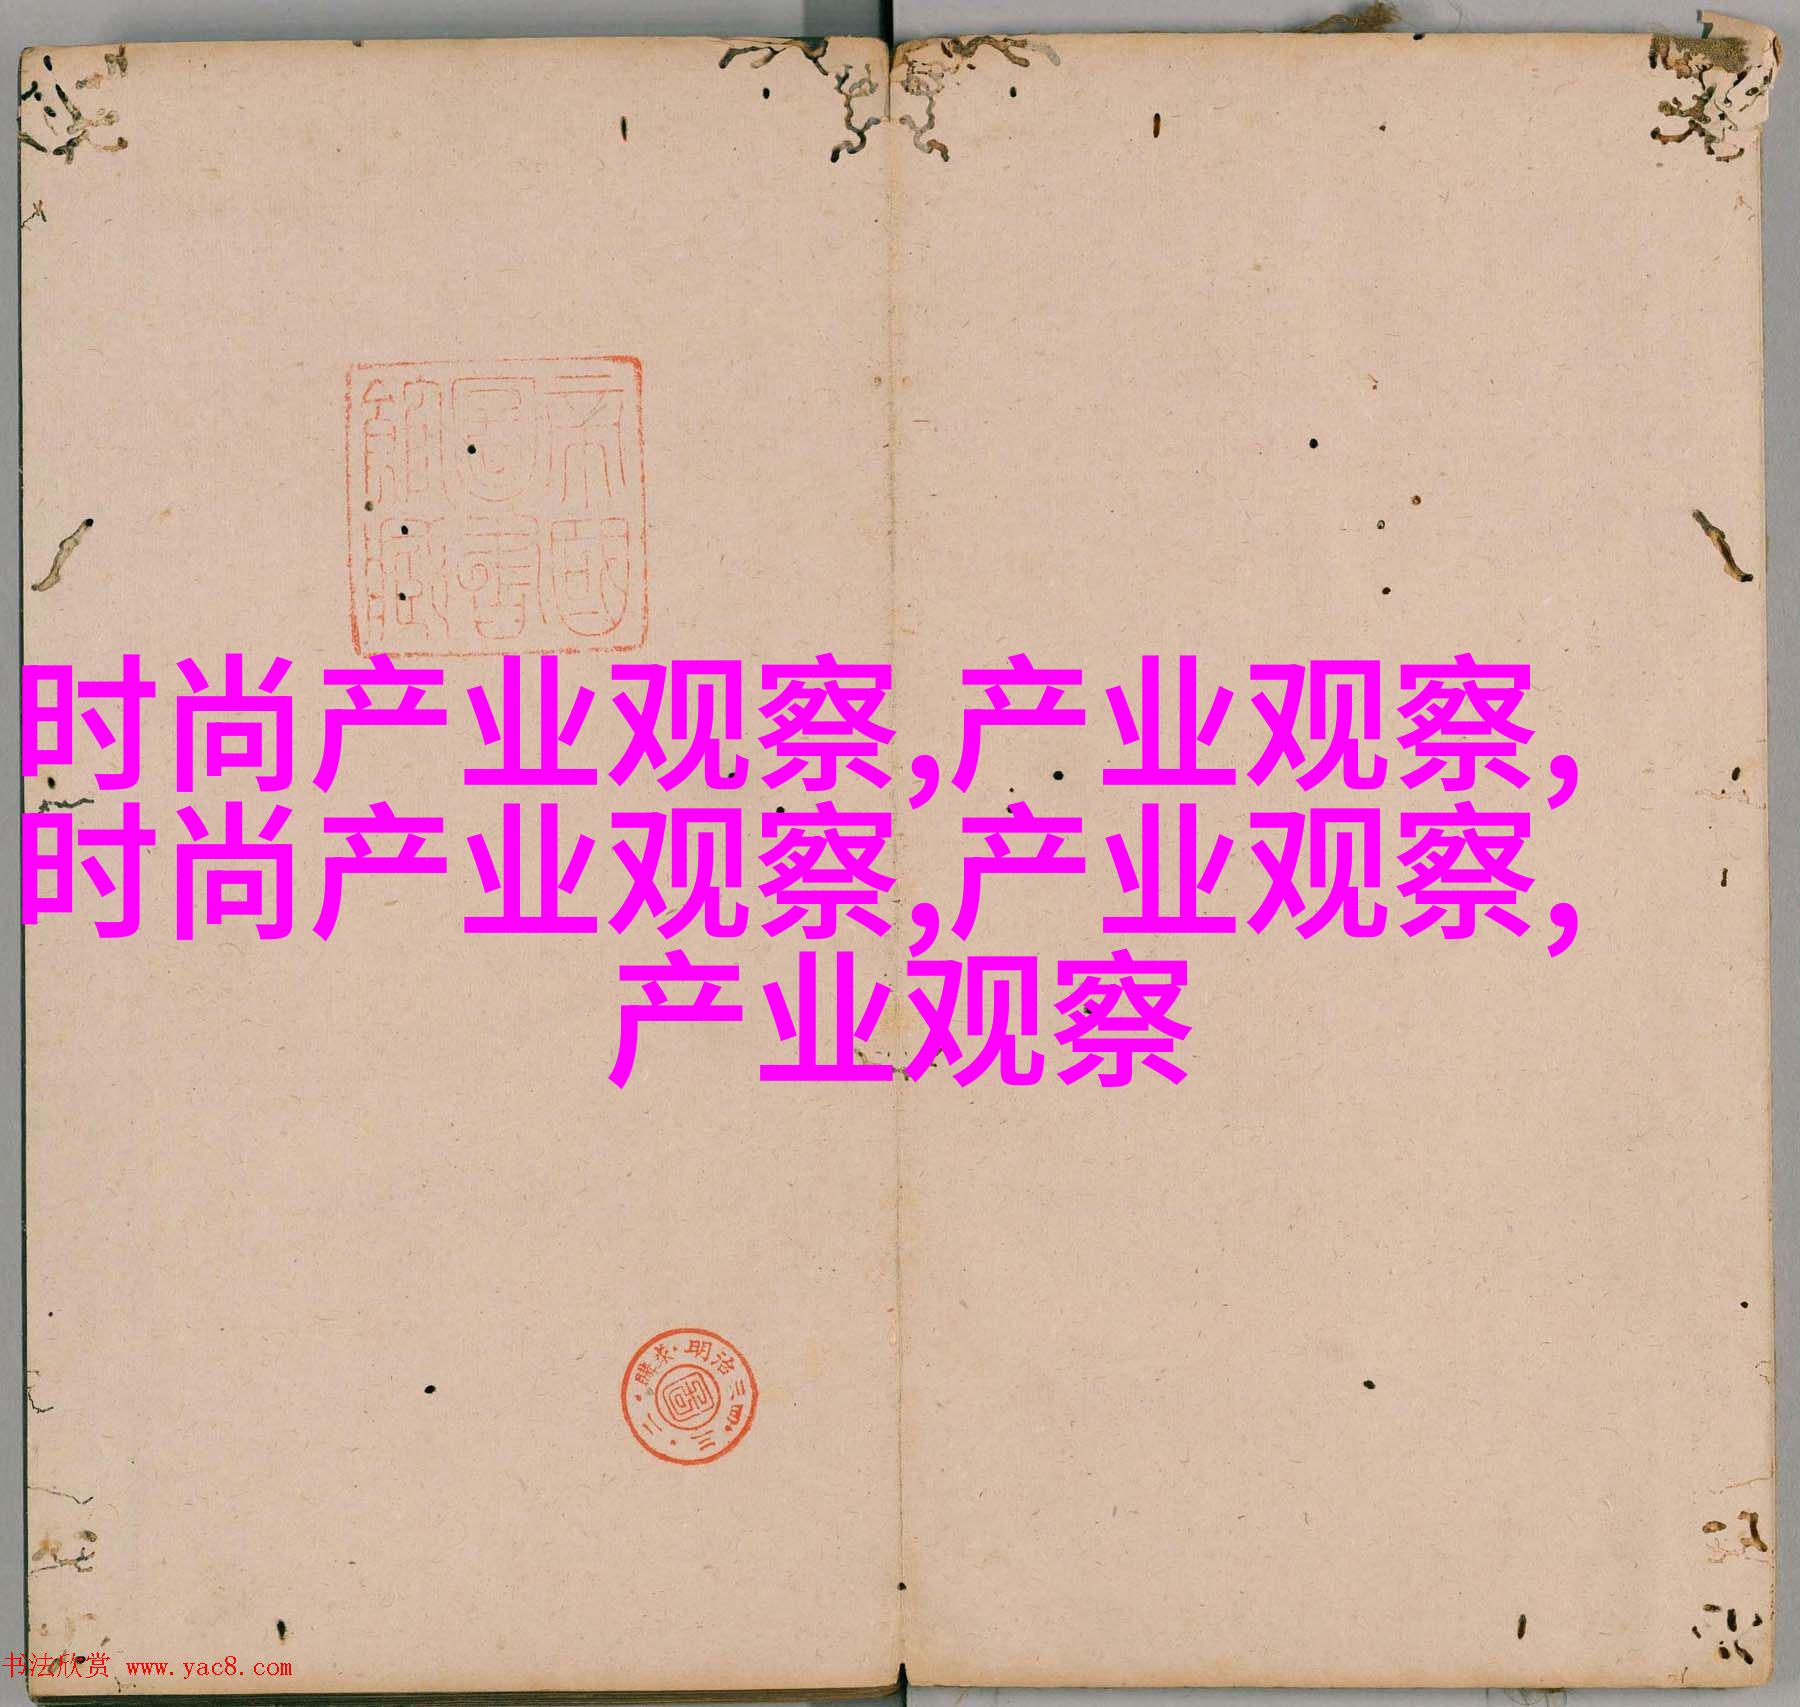 帝國
圖書
館藏
時尚产业观察,产业观察,
时尚产业观察,产业观察,
产业观察
明治三四・三・二・購求・
书法欣赏 www.yac8.com